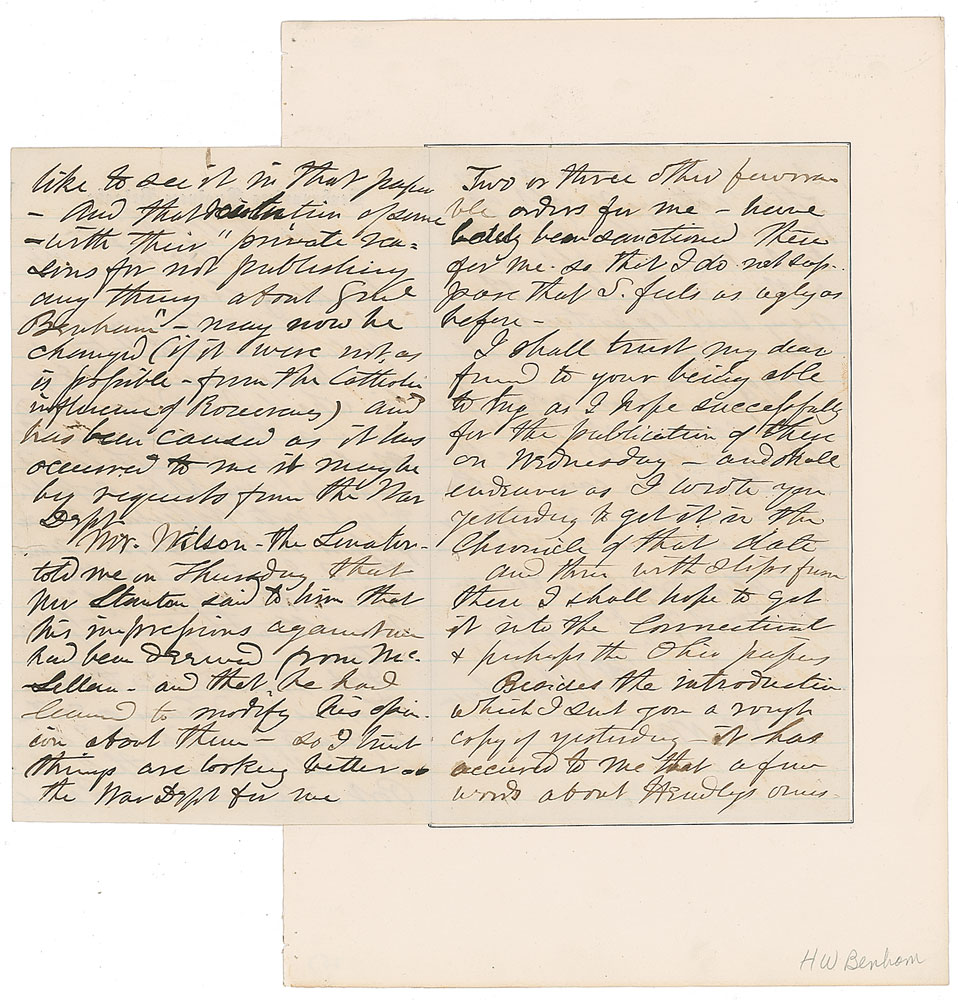 like to see it in that paper
- And that of some
- with their "private rea=
sons for not publishing
any thing about Genl
Benham" - may now be
changed (if it were not, as
is possible - from the Catholic
influence of Rosecrans) and
has been caused as it has
occurred to me it may be
by requests from the War
Dept
Mr. Wilson - the Senator -
told me on Thursday that
Mr Stanton said to him that
his impressions against me
had been derived from Mc-
Lellan - and that he had
learned to modify his opin-
ion about them - so I trust
things are looking better at
the War Dept for me
Two or three other favora
ble orders for me - have
lately been sanctioned there
for me. so that I do not sup-
pose that S. feels as ugly as
before -
I shall trust my dear
friend to your being able
to try, as I hope successfully
for the publication of these
on Wednesday - and shall
endeavor as I wrote you
yesterday to get it in the
Chronicle of that date
and then with slips from
there I shall hope to get
it into the Connecticut
+ perhaps the Ohio papers
Besides the introduction
which I sent you a rough
copy of yesterday - it has
occurred to me that a few
words about Headleys omis-
H W Benham